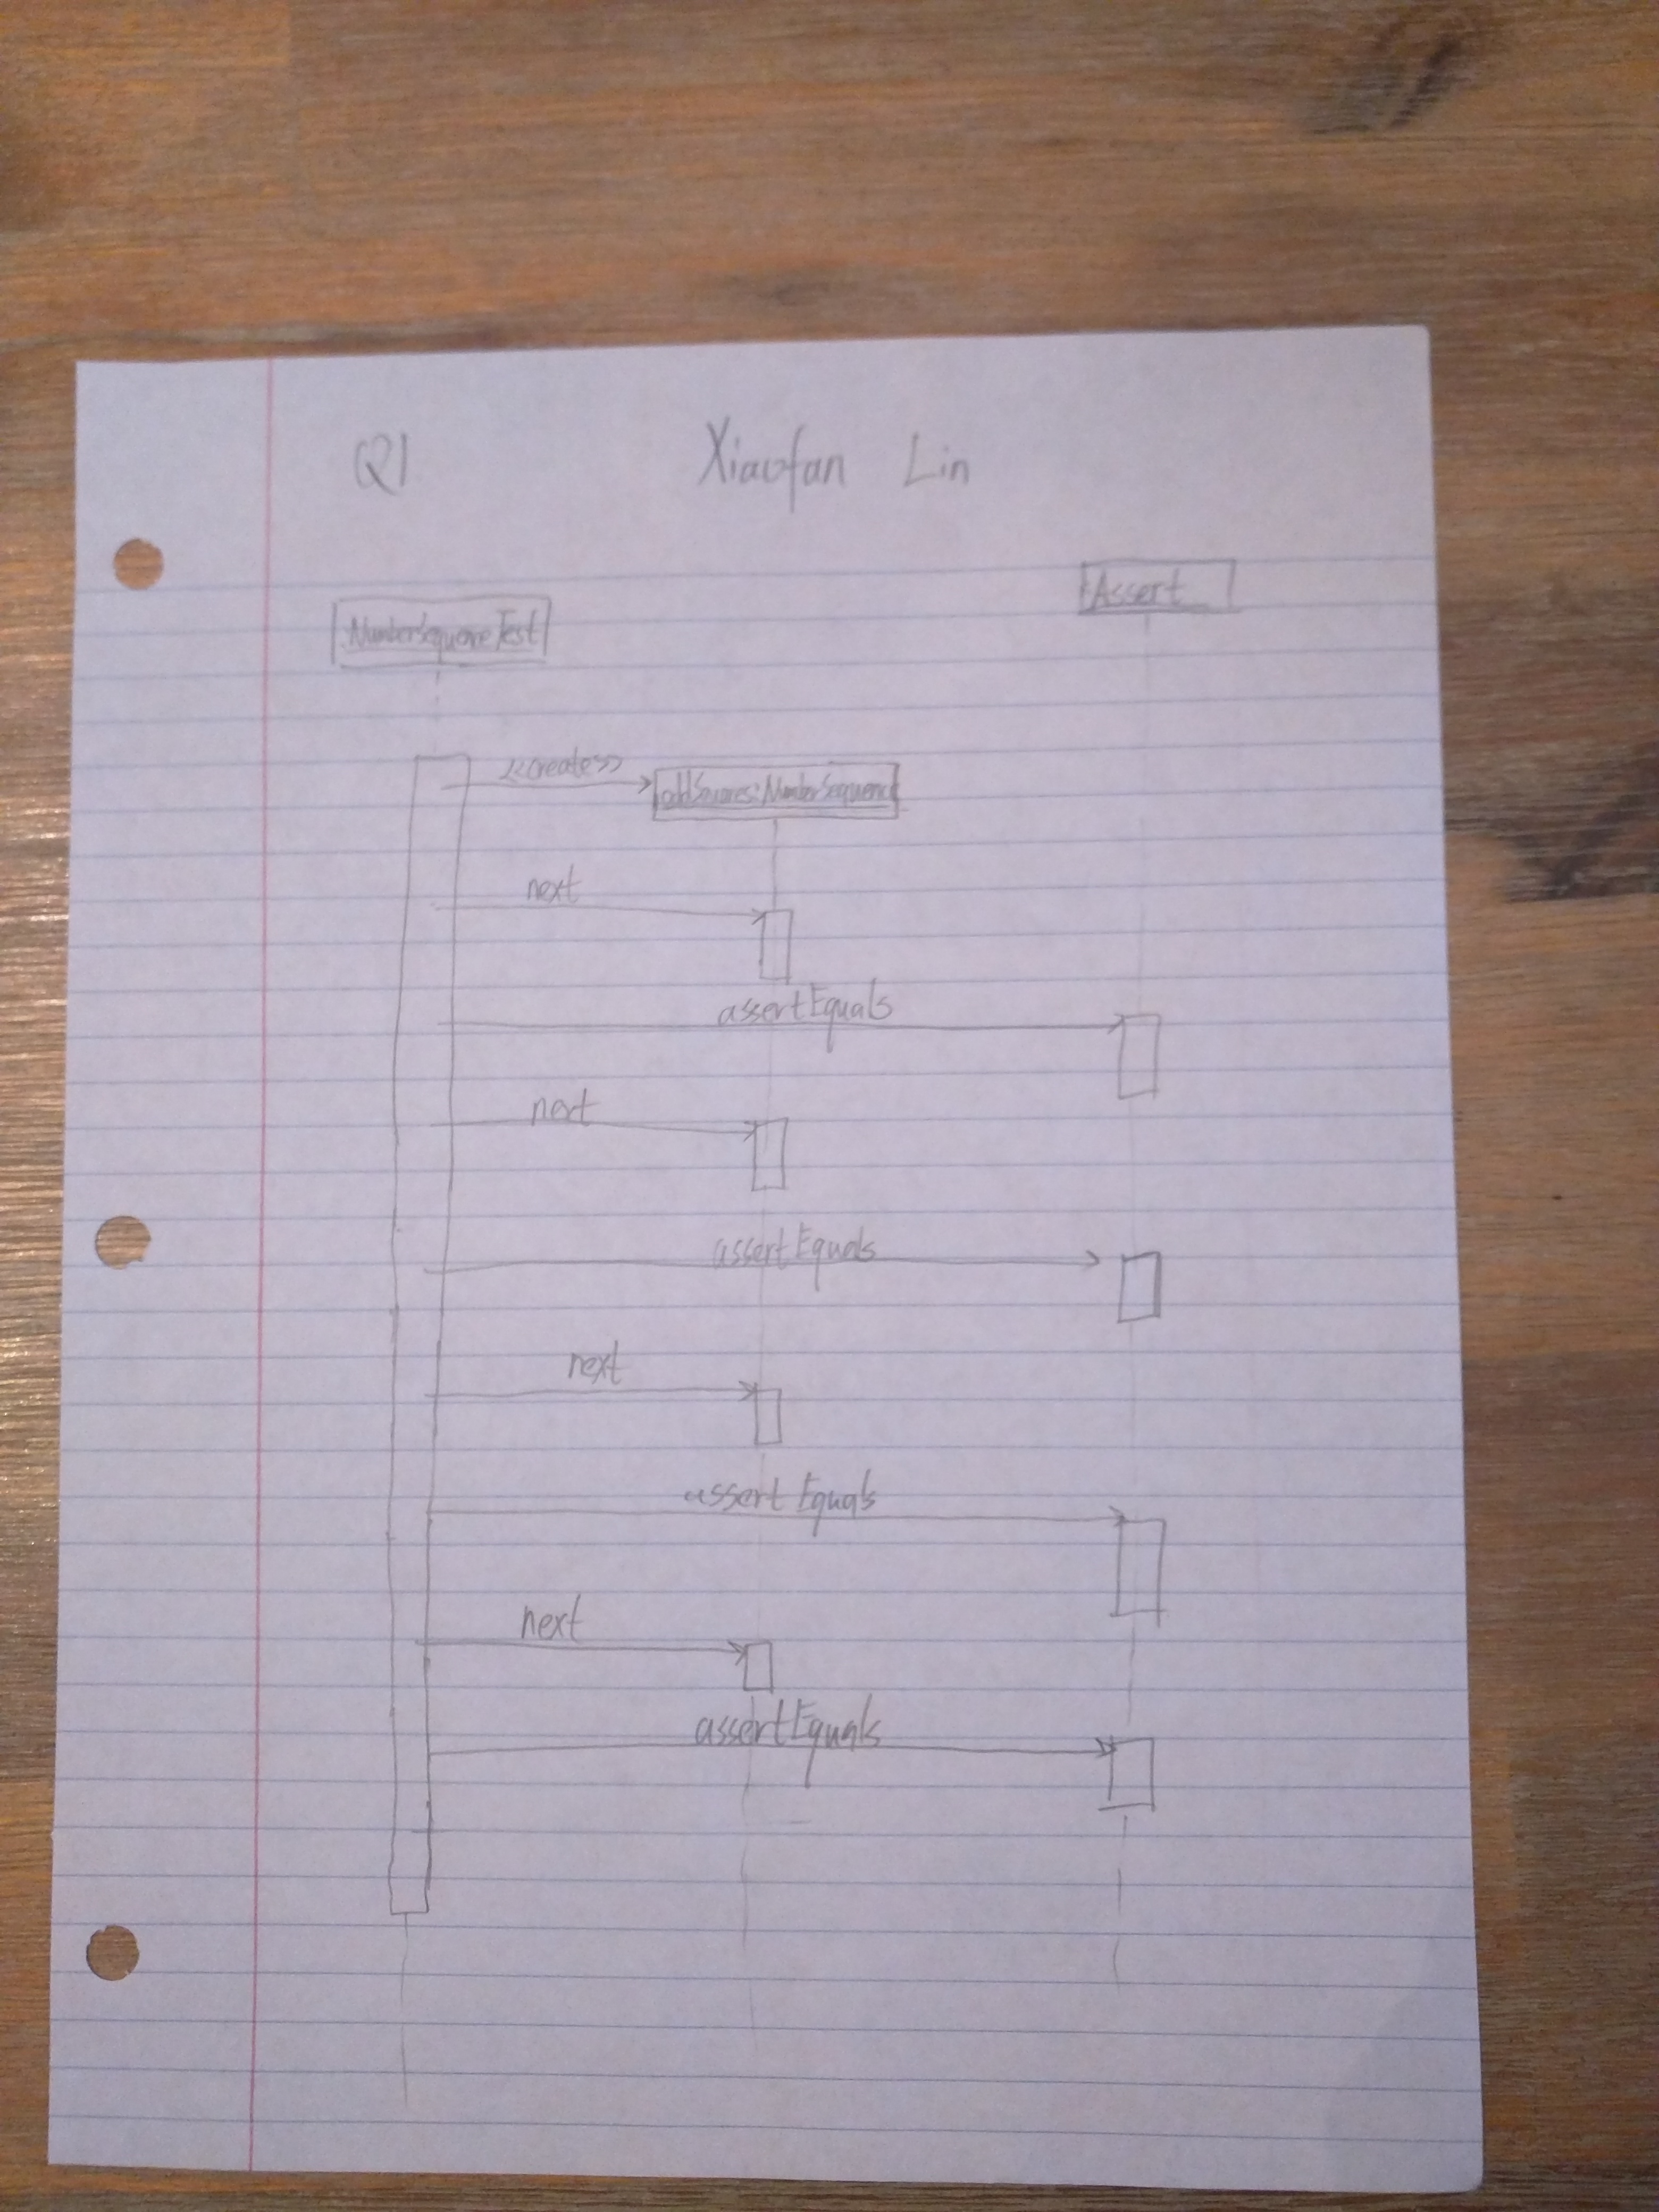 Q1 Xiaofan Lin
:Assert
:NumberSequenceTest
<<create>>
oddSquares:NumberSequence
next
assertEquals
next
assertEquals
next
assertEquals
next
assertEquals